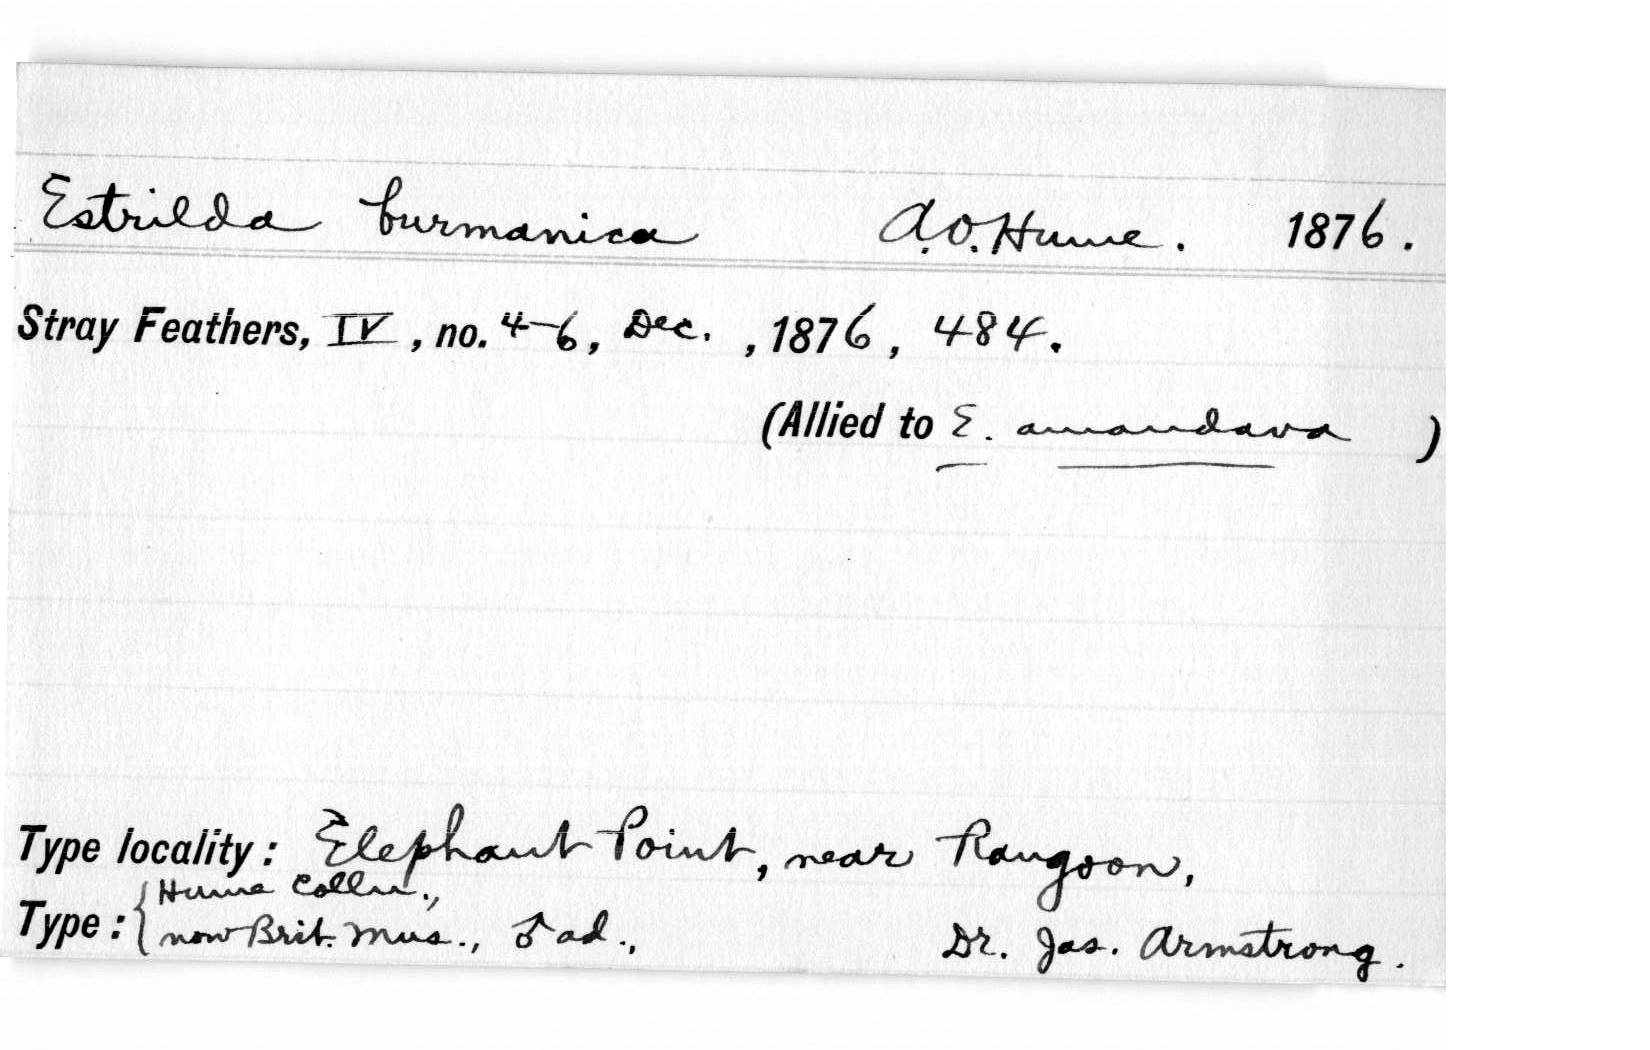 Estrilda burmanica A.O. Hume. 1876.
Stray Feathers, IV, no. 4-6, Dec., 1876, 484.
(Allied to E. amandava)
Type locality: Elephant Point, near Rangoon,
Hume Colln.,
Type: now Brit. Mus., ♂ ad., Dr. Jas. Armstrong.